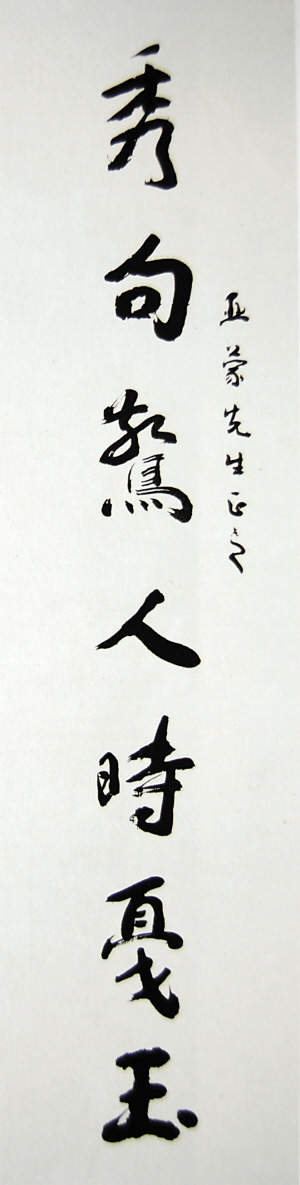 亚蒙先生正之
秀句驚人時戛玉